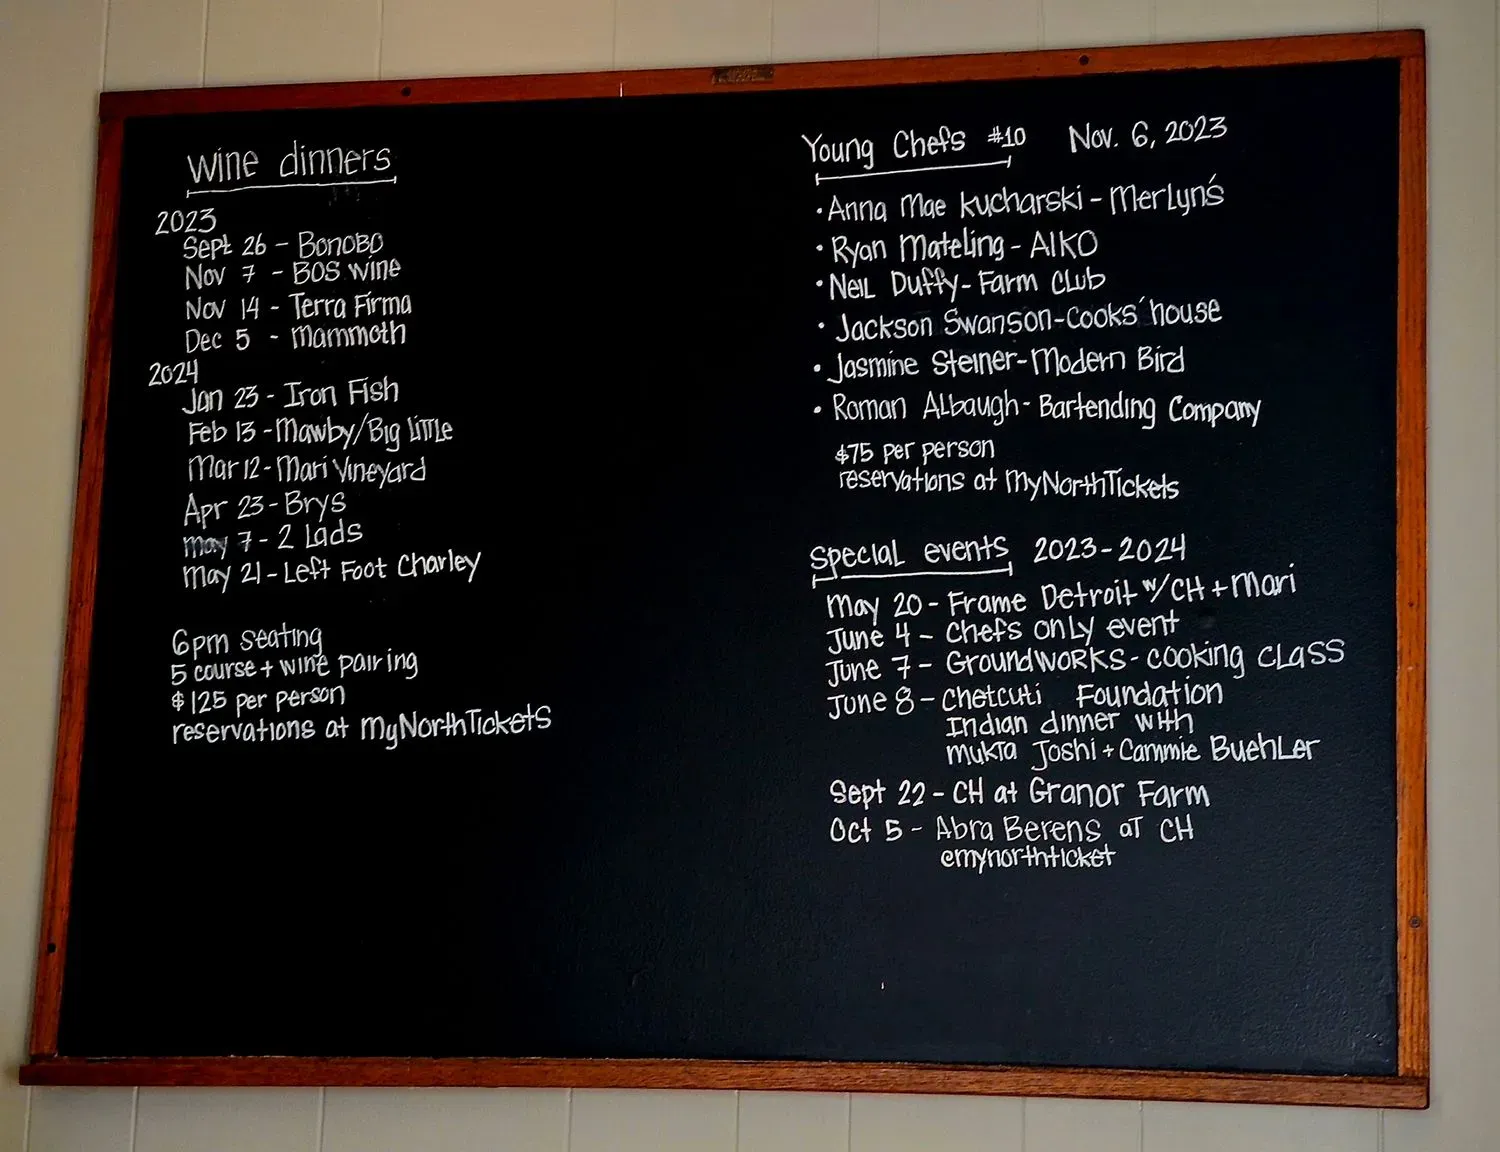 Wine dinners
2023
Sept 26 - Bonobo
Nov 7 - BOS wine
Nov 14 - Terra Firma
Dec 5 - Mammoth
2024
Jan 23 - Iron Fish
Feb 13 - Mawby/Big Little
Mar 12 - Mari Vineyard
Apr 23 - Brys
May 7 - 2 Lads
May 21 - Left Foot Charley
6pm seating
5 course + wine pairing
$125 per person
reservations at MyNorthTickets
Young Chefs #10 Nov. 6, 2023
• Anna Mae Kucharski - Merlyn's
• Ryan Mateling - AIKO
• Neil Duffy - Farm Club
• Jackson Swanson - Cooks' house
• Jasmine Steiner - Modern Bird
• Roman Albaugh - Bartending Company
$75 per person
reservations at MyNorthTickets
Special events 2023-2024
May 20 - Frame Detroit w/CH + Mari
June 4 - Chefs only event
June 7 - Groundworks - cooking class
June 8 - Chetcuti Foundation
Indian dinner with
Mukta Joshi + Cammie Buehler
Sept 22 - CH at Granor Farm
Oct 5 - Abra Berens at CH
@mynorthticket